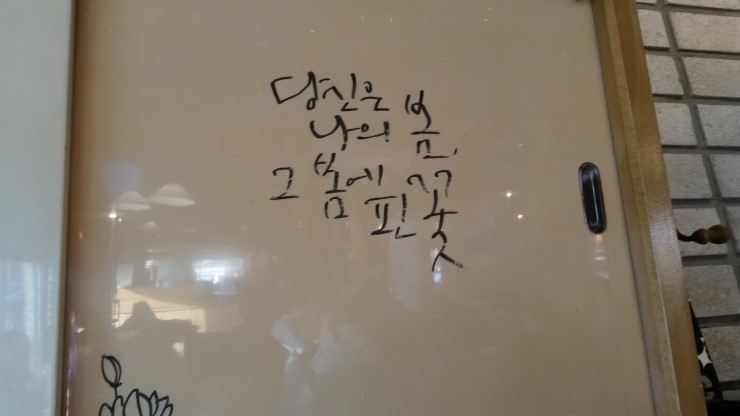 당신은
나의 봄,
그 봄에
핀 꽃